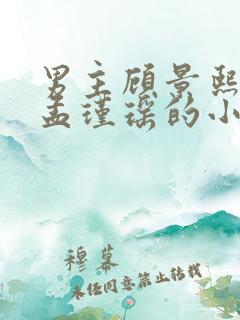 男主顾景熙
孟瑾瑶的小
穆幕
未经同意禁止转载